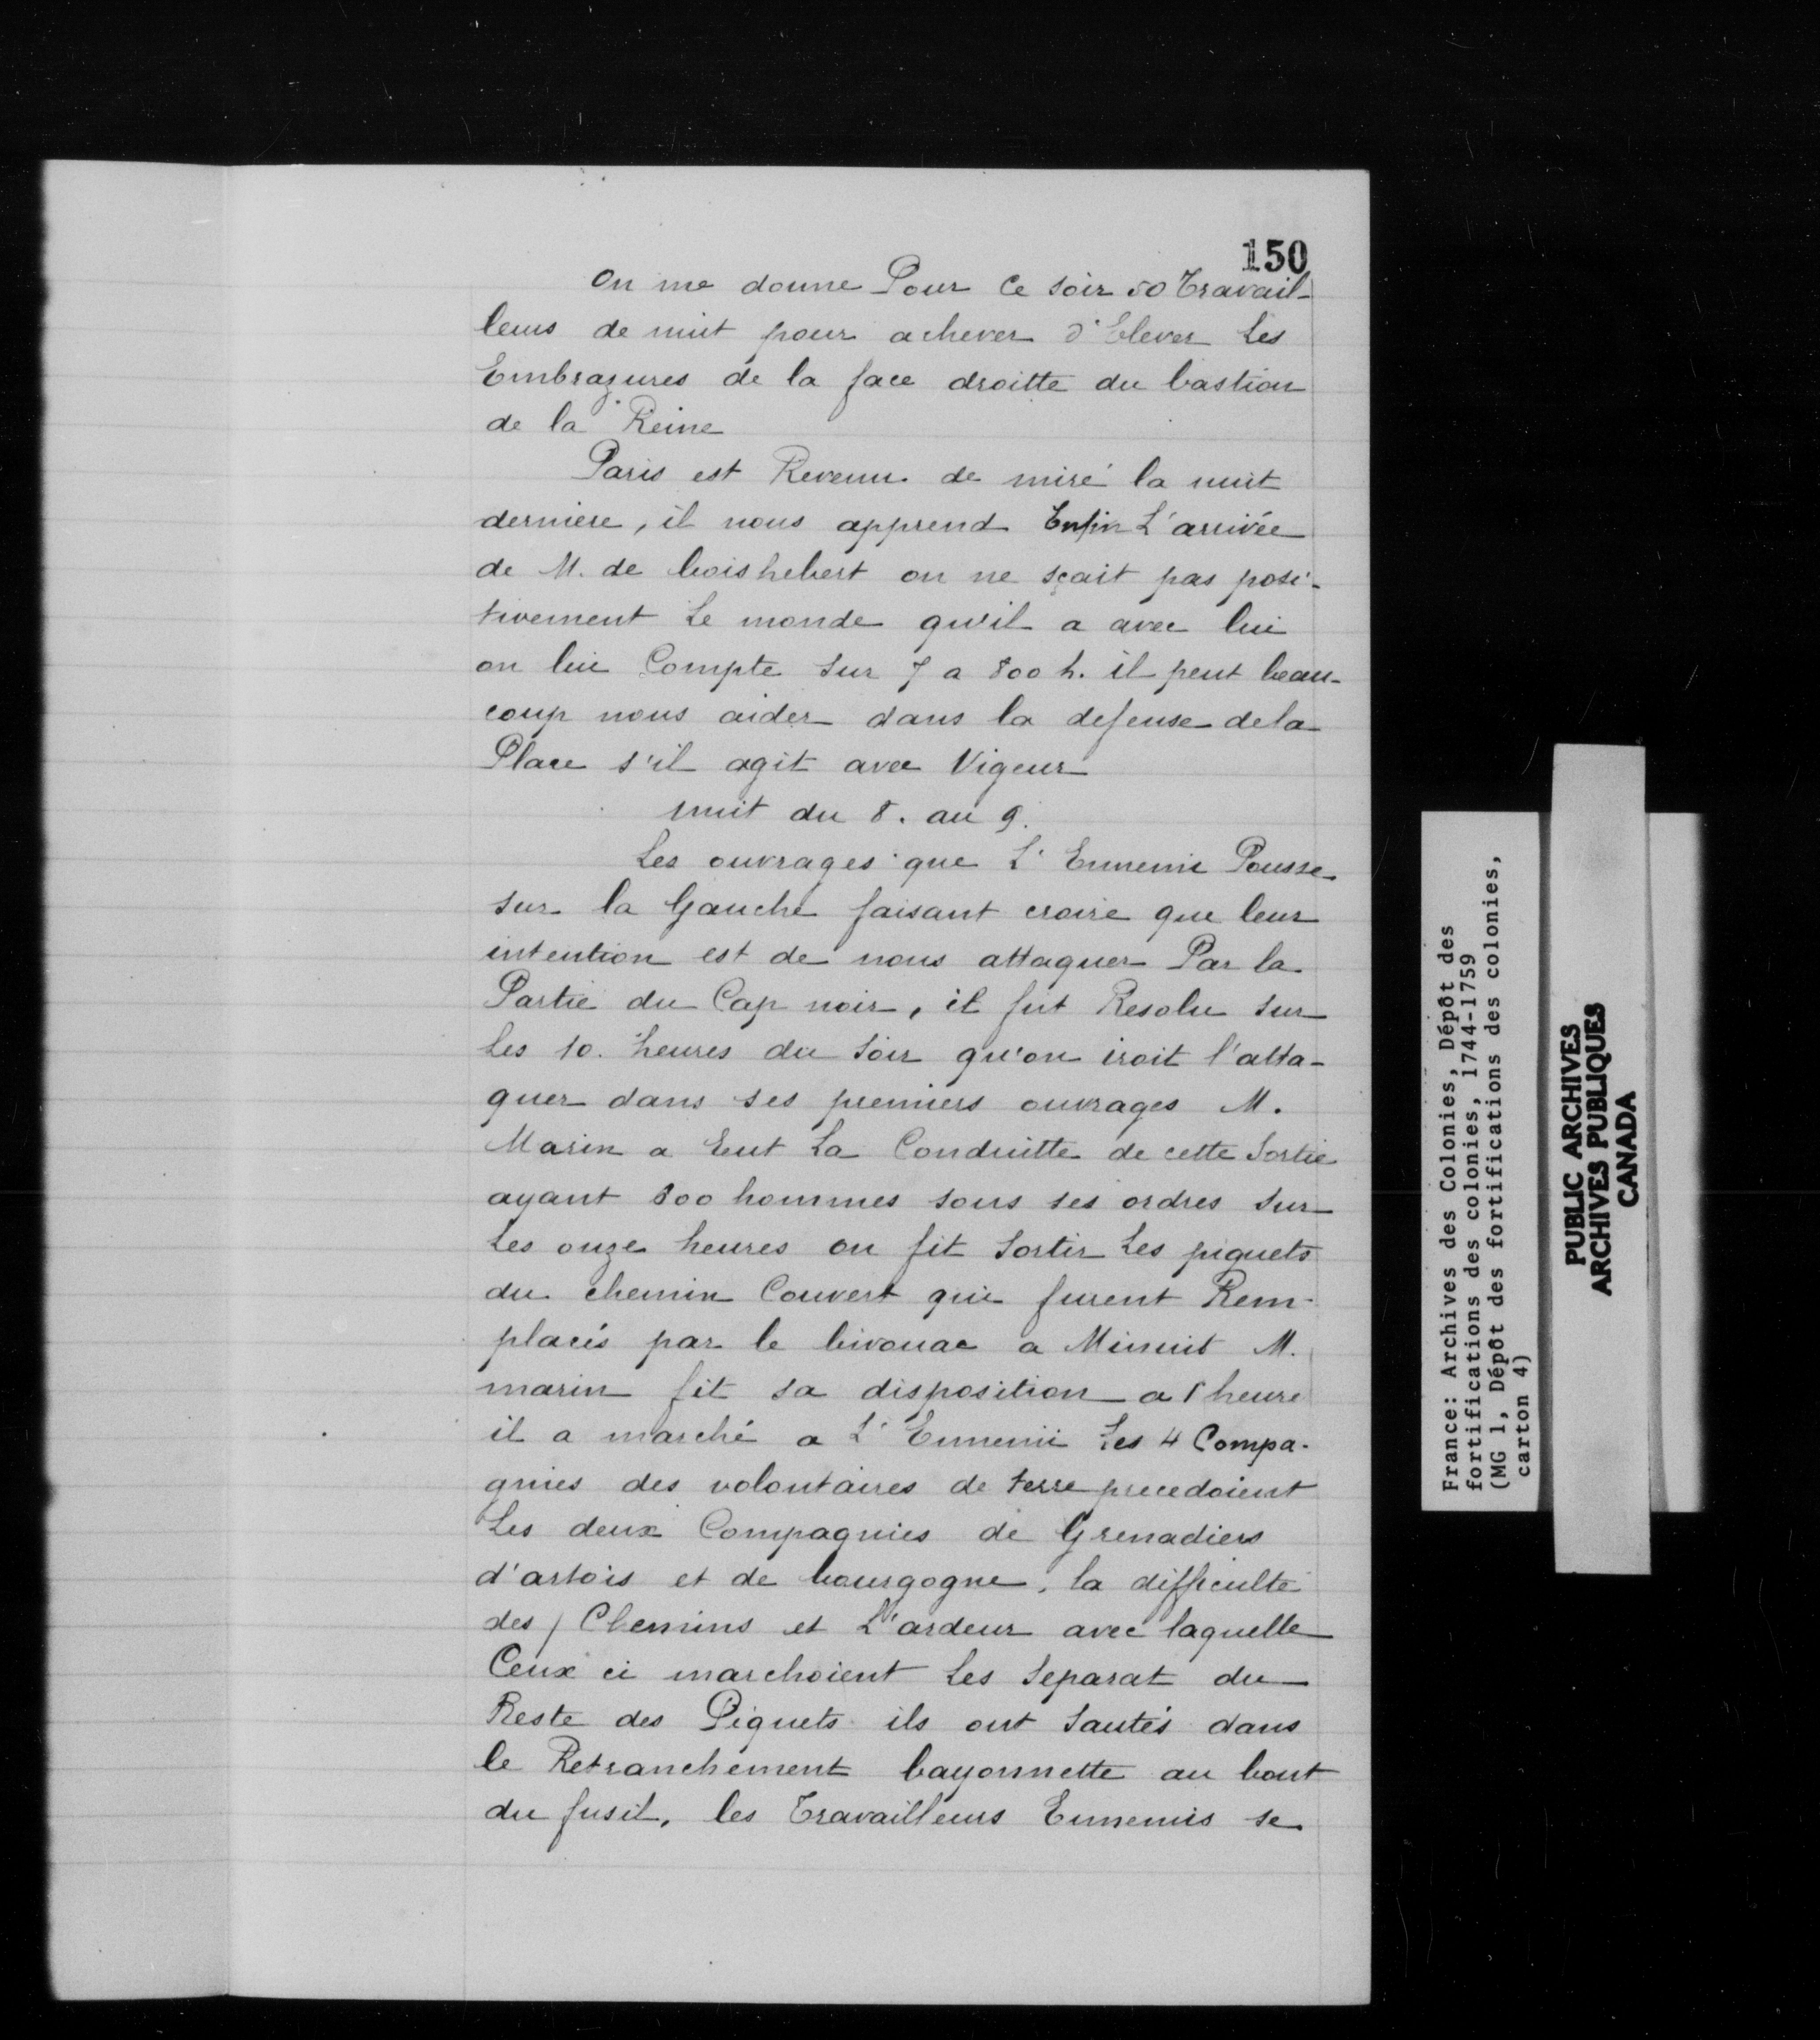 150
On me donne Pour Ce soir 50 Travail-
leurs de nuit pour achever d'Elever Les
Embrazures de la face droitte du bastion
de la Reine
Paris est Revenu de miré la nuit
derniere, il nous apprend Enfin L'arrivée
de M. de boishebert on ne sçait pas posi-
tivement Le monde qu'il a avec lui
on lui Compte sur 7 a 800 h. il peut beau-
coup nous aider dans la defense dela
Place s'il agit avec Vigeur
nuit du 8. au 9.
Les ouvrages que L'Ennemi Pousse
sur la Gauche faisant croire que leur
intention est de nous attaquer Par la
Partie du Cap noir, il fut Resolu sur
Les 10. heures du soir qu'on iroit l'atta-
quer dans ses premiers ouvrages M.
Marin a Eut La Conduitte de cette Sortie
ayant 800 hommes sous ses ordres sur
Les onze heures on fit Sortir Les piquets
du chemin Couvert qui furent Rem-
placés par le bivouac a Minuit M.
marin fit sa disposition a 1 heure
il a marché a L'Ennemi Les 4 Compa-
gnies des volontaires de terre precedoient
Les deux Compagnies de Grenadiers
d'artois et de bourgogne, la difficulté
des / Chemins et L'ardeur avec laquelle
Ceux ci marchoient Les Separat du
Reste des Piquets ils ont Sautés dans
le Retranchement bayonnette au bout
du fusil, les Travailleurs Ennemis se
France: Archives des Colonies, Dépôt des
fortifications des colonies, 1744-1759
(MG 1, Dépôt des fortifications des colonies,
carton 4)
PUBLIC ARCHIVES
ARCHIVES PUBLIQUES
CANADA